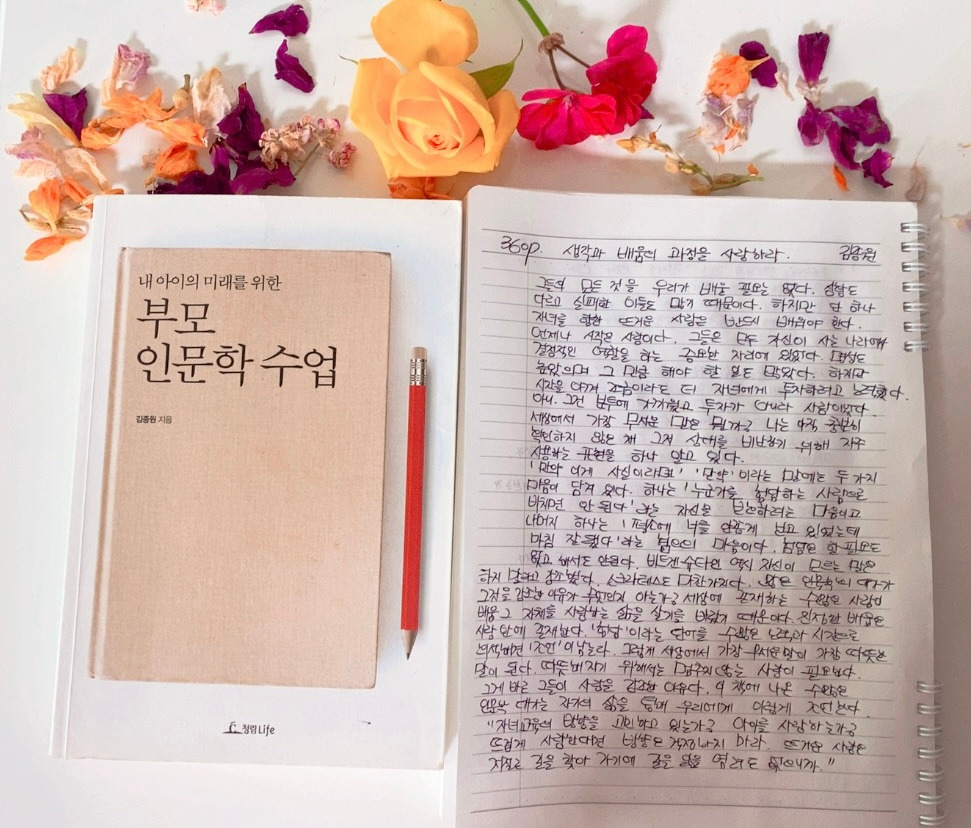 내 아이의 미래를 위한
부모
인문학 수업
김종원 지음
청림Life
360p. 생각과 배움의 과정을 사랑하라. 김종원
그들의 모든 것을 우리가 배울 필요는 없다. 험담도
다르고 실패한 이들도 많기 때문이다. 하지만 단 하나
자녀를 향한 뜨거운 사랑은 반드시 배워야 한다.
언제나 시작은 사랑이다. 그들은 모두 자신이 사는 나라에서
결정적인 역할을 하는 중요한 자리에 있었다. 명성도
높았으며 그 만큼 해야 할 일도 많았다. 하지만
시간을 아껴 조금이라도 더 자녀에게 투자하려고 노력했다.
아니, 그건 분투에 가까웠고 투자가 아니라 사랑이었다.
세상에서 가장 무서운 말은 뭘까? 나는 아직 충분히
확인하지 않은 채 그저 상대를 비난하기 위해 자주
사용하는 표현을 하나 알고 있다.
'만약 이게 사실이라면' '만약'이라는 말에는 두 가지
마음이 담겨 있다. 하나는 '누군가를 험담하는 사람으로
비치면 안 된다'라는 자신을 보호하려는 마음이고
나머지 하나는 '평소에 너를 안 좋게 보고 있었는데
마침 잘 됐다'라는 마음이다. 험담은 할 필요도
없고 해서도 안된다. 비트겐슈타인 역시 자신이 모르는 말은
하지 말라고 강조했다. 소크라테스도 마찬가지다. 많은 인문학의 대가가
그것을 강조한 이유가 무엇인지 아는가? 세상에 존재하는 수많은 사람이
배움 그 자체를 사랑하는 삶을 살기를 바랐기 때문이다. 진정한 배움은
사랑 안에 존재한다. '험담'이라는 단어를 수많은 노력과 시간으로
반복하면 '조언'이 남는다. 그렇게 세상에서 가장 무서운 말이 가장 따뜻한
말이 된다. 따뜻해지기 위해서는 멈추지 않는 사랑이 필요하다.
그게 바로 그들이 사랑을 강조한 이유다. 이 책에 나온 수많은
인문학 대가는 자기의 삶을 통해 우리에게 이렇게 조언한다.
"자녀교육의 방향을 고민하고 있는가? 아이를 사랑하는가?
뜨겁게 사랑한다면 방향은 걱정하지 마라. 뜨거운 사랑은
저절로 길을 찾아 가기에 길을 잃을 염려도 없으니까."